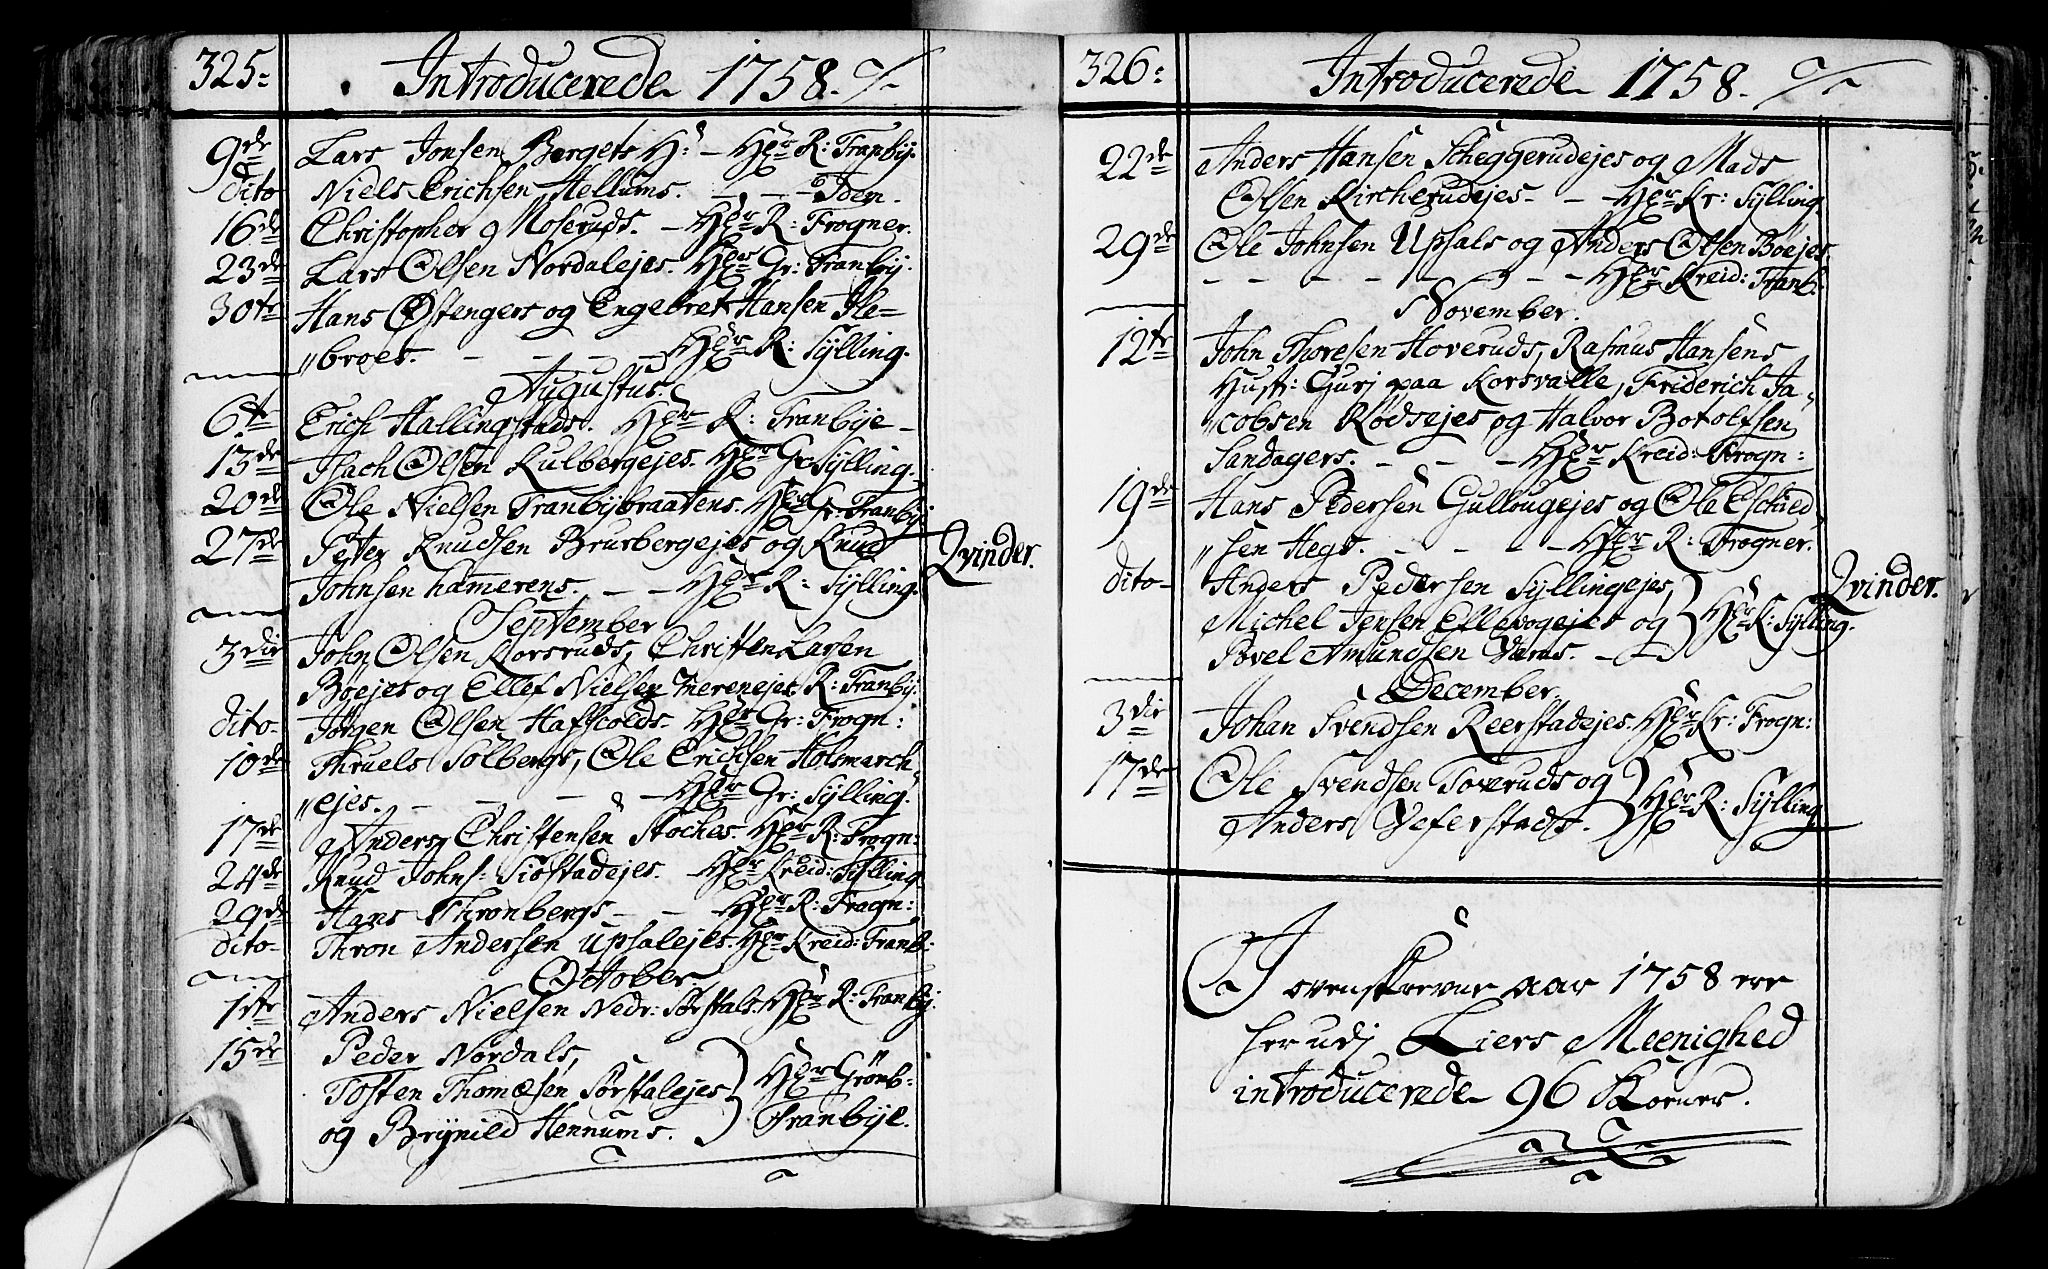 325:
Introducerede 1758.
9de Lars Jonsen Bergets H: - Hr R: Tranby.
dito Niels Erichsen Hellums. - - - Idem.
16de Christopher Moseruds. - Hr R: Frogner.
23de Lars Olsen Nordalejes. Hr Gr: Tranby.
30te Hans Østengers og Engebret Hansen Ile-
"broes. - - - Hr R: Sylling.
Augustus.
6te Erich Hallingstads. Hr R: Tranbye -
13de Isach Olsen Kulbergejes. Hr Gr: Sylling.
20de Ole Nielsen Tranbybraatens. Hr Gr: Tranby.
27de Peter Knudsen Brusbergejes og Knud
Johnsen hamerens. - - Hr R: Sylling.
Qvinder.
September
3die John Olsen Korsruds, Christen Larsen
Bøejes og Ellef Nielsen Werenejes R: Tranby.
dito- Jørgen Olsen Haffscolds. Hr Gr: Frogn:
10de Thruels Solbergs, Ole Erichsen Holsmarch
"ejes. - - - Hr Gr: Sylling.
17de Anders Christensen Stoches. Hr R: Frogn:
24de Knud Johns: Siøstadejes. - Hr Kreid: Sylling
29de Hans Thronbergs - - Hr R: Frogn:
dito- Thron Andersen Upsalejes. Hr Kreid: Tranb:
October
1ste Anders Nielsen Nedr: Sørstals. Hr R: Tranby.
15de Peder Nordals,
Tosten Thomæsen Sørstalejes Hr Grönb:
og Brynild Hennums. Tranbye.
326:
Introducerede 1758.
22de Anders Hansen Scheggerudejes og Mads
Olsen Kircherudejes - - Hr Kr: Sylling.
29de Ole Johnsen Upsals og Anders Olsen Bøejes.
- - - - - - - Hr Kreid: Tranb.
November.
12te John Thoresen Hoveruds, Rasmus Hansens
Hust: Gurj paa Korsvalle, Friderich Ja-
"cobsen Rødsejes og Halvor Botolfsen
Sandagers. - - - Hr Kreid: Frogn:
19de Hans Pedersen Gullougejes og Ole Eschild
"sen Hegs. - - - - Hr R: Frogner.
dito- Anders Pedersen Syllingejes,
Michel Jensen Ellevogejes og Hr R: Sylling.
Povel Amundsen Væras. - -
Qvinder.
December.
3die Johan Svendsen Reerstadejes. Hr Kr: Frogn:
17de Ole Svendsen Toveruds og
Anders Veferstads. Hr R: Sylling
I ovenskrevne aar 1758 ere
her udj Liers Meenighed
introducerede 96 Koener.